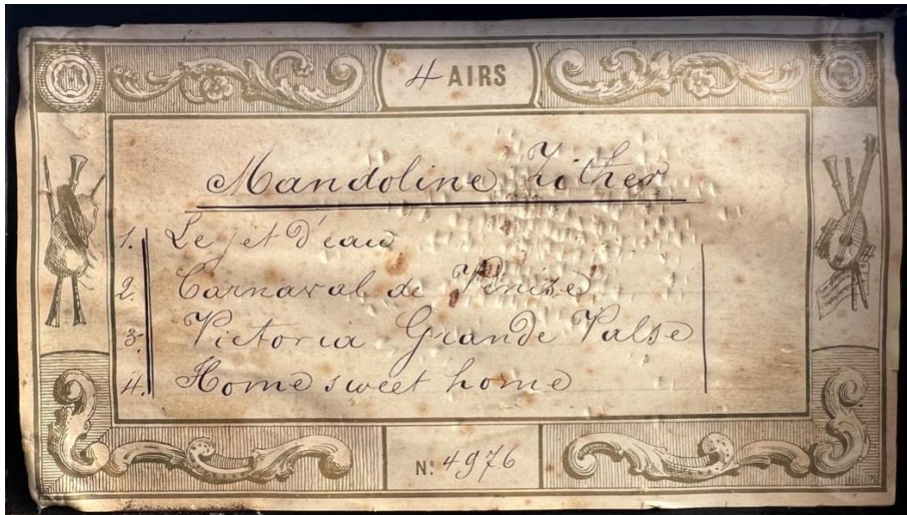 4 AIRS
Mandoline Zither
1. Le jet d'eau
2. Carnaval de Venise
3. Victoria Grande Valse
4. Home sweet home
N: 4976